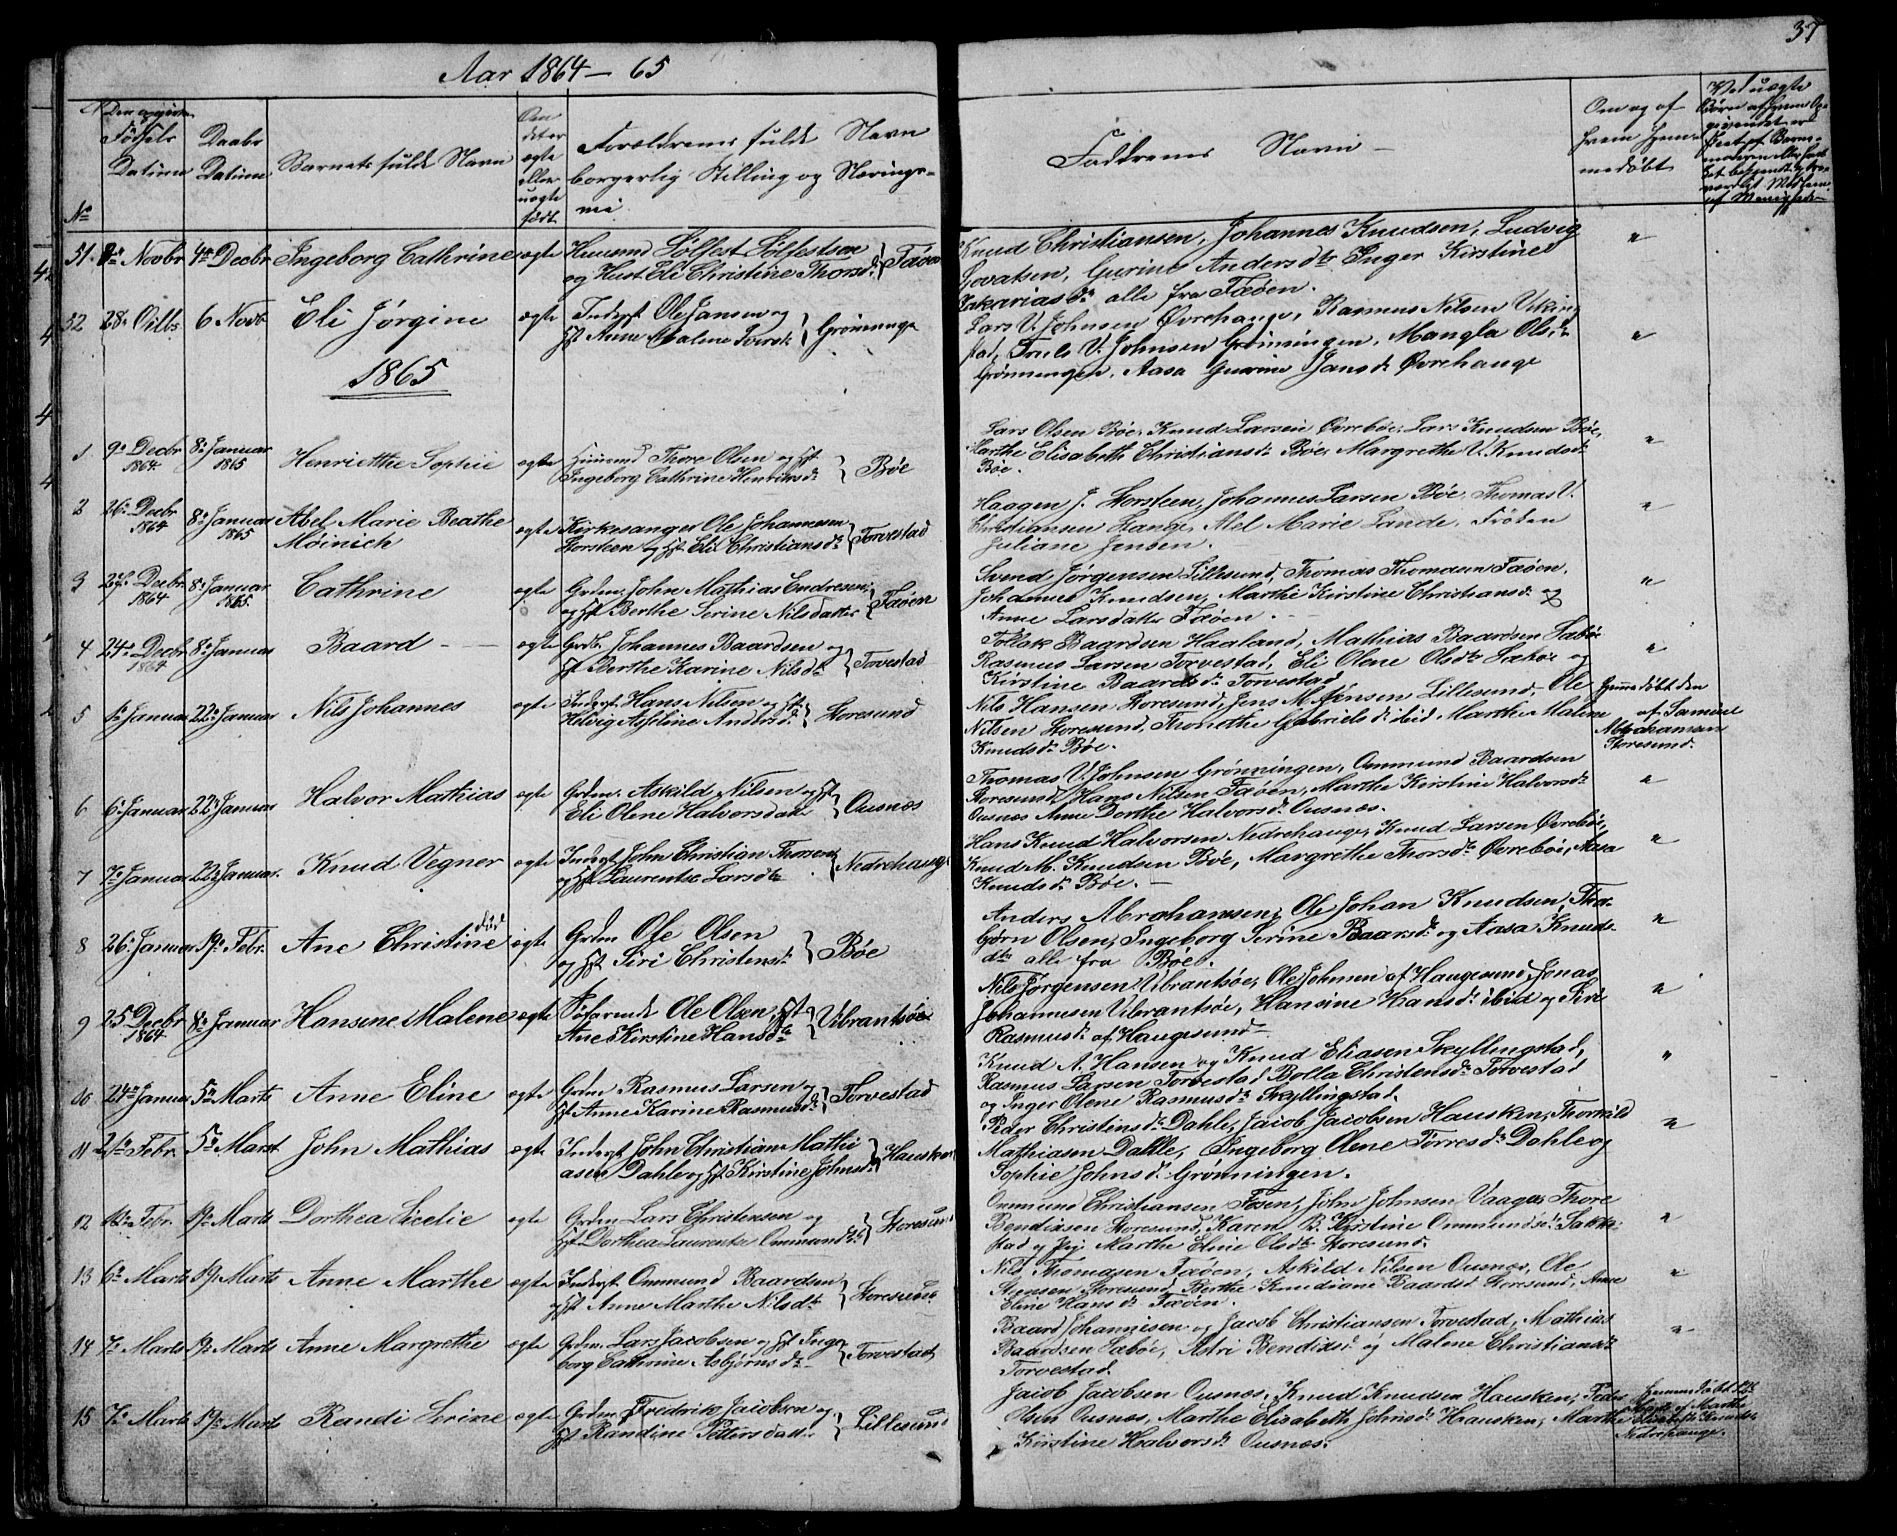 37
Aar 1864 - 65
No
Fødsels Datum
Daabs Datum
Barnets fulde Navn
Om det er ægte eller uægte født
Forældrenes fulde Navn
borgerlig Stilling og Nærings-
vei
Faddrenes Navn
Om og af hvem hjemmedøbt
51. Novbr 4de Decbr Ingeborg Cathrine ægte Huusmd Sølfest Sølfestsen
og Hust. Eli Christine Thorsd. Føøen
Knud Christiansen, Johannes Knudsen, Ludvig
Gurine Andersdtr Inger Kirstine
Zakariasdr alle fra Føøen.
52 28de 6 Novb Eli Jørgine ægte Inderst Ole Jansen og
Hst Anne Malene Grønninge
Lars V. Johnsen Øvrehauge, Rasmus Nilsen
V. Johnsen Grønningen, Mangla Olsdr
Grønningen, Aasa Gurine Jansdr Øvrehauge
1865
1 9de Decbr 1864 8de Januar 1865 Henriette Sophie ægte Huusmd Thore Olsen og Hst
Ingeborg Cathrine Henriksdr Bøe
Lars Olsen Bøe, Knud Larsen Øvrebøe, Lars Knudsen Bøe,
Marthe Elisabeth Christiansdr Bøe, Margrethe V. Knudsdr
Bøe.
2 26de Decbr 1864 8de Januar 1865 Abel Marie Beathe
Møinich ægte Kirkesanger Ole Johannesen
Storsteen og Hst Eli Christiansdr Torvestad
Haagen J. Storsteen, Johannes Larsen Bøe, Thomas V.
Christiansen Hauge, Abel Marie Lande, Frøken
Juliane Jensen.
3 Decbr 1864 8de Januar 1865. Cathrine ægte Grdm. John Mathias Endresen
og Hst Berthe Serine Nilsdatter Føøen
Svend Jørgensen Lillesund, Thomas Thomasen Føøen,
Johannes Knudsen, Marthe Kirstine Christiansdr og
Anne Larsdatter Føøen.
4 24de Decbr 1864 8de Januar Baard ægte Grdb. Johannes Baardsen og
Hst Berthe Karine Nilsdr Torvestad
Tollak Baardsen Haaland, Mathias Baardsen Sæbøe
Rasmus Larsen Torvestad, Eli Olene Olsdtr Sæbøe og
Kirstine Baardsdr Torvestad
5 1de Januar 22de Januar Nils Johannes ægte Inderst Hans Nilsen og Hst
Helvig Asseline Andersdr Storesund
Nils Hansen Storesund, Jens M. Jensen Lillesund, Ole
Nilsen Storesund, Thorethe Gabrielsdr ibid Marthe Malene
Knudsdr Bøe.
Hjemmedøbt den
af Samuel
Abrahamsen
Storesund.
6 6de Januar 22de Januar Halvor Mathias ægte Grdm. Askild Nilsen og Hst
Eli Olene Halvorsdatter Ousnæs
Thomas V. Johnsen Grønningen, Ommund Baardsen
Storesund, Hans Nilsen Føøen, Marthe Kirstine Halvorsdr
Ousnæs Anne Dorthe Halvorsdr Ousnæs.
7 7de Januar 22de Januar. Knud Vegner ægte Inderst John Christian Thorsen
og Hst Laurentse Larsdtr Nedrehauge
Hans Knud Halvorsen Nedrehauge, Knud Larsen Øvrebøe,
Knud M. Knudsen Bøe, Margrethe Thorsdtr Øvrebøe, Aasa
Knudsdr Bøe.
8 26de Januar 19de Febr. Ane Christine død ægte Grdm Ole Olsen
og Hst Siri Christensdr Bøe
Anders Abrahamsen, Ole Johan Knudsen, Thor-
bjørn Olsen, Ingeborg Serine Baarsdr og Aasa Knuds-
dtr alle fra Bøe.
9 25de Decbr 1864 8de Januar Hansine Malene ægte Søfarende Ole Olsen, Hst
Ane Kirstine Hansdtr Vibrantsøe
Nils Jørgensen Vibrantsøe, Ole Johnsen af Haugesund, Jonas
Johannesen Vibrantsøe, Hansine Hansdr ibid og Siri
Rasmusdr af Haugesund
10 24de Januar 5te Marts Anne Eline ægte Grdm Rasmus Larsen og
Hst Anne Karine Rasmusdr Torvestad
Knud A. Hansen og Knud Eliasen Skyllingstad,
Rasmus Larsen Torvestad Bolla Christensdr Torvestad
og Inger Olene Rasmusdr Skyllingstad.
11 Febr. 5te Marst John Mathias ægte Inderst John Christian Mathi
asen Dahle og Hst Kirstine Johnsd. Hausken
Peder Christensdr Dahle, Jacob Jacobsen Hausken, Thorkild
Mathiasen Dahle, Ingeborg Olene Torresdr Dahle og
Sophie Johnsdr Grønningen.
12 Febr. 19de Marts Dorthea Sicelie ægte Grdm Lars Christensen og
Hst Dorthea Laurentse Ommundsdr Storesund
Ommund Christiansen Fosen, John Johnsen Vaage, Thore
Bendixen Storesund, Karen B. Kirstine Ommundsdr Sakke-
stad og Pige Marthe Eline Olsdtr Storesund.
13 6te Marts 19 Marts Anne Marthe ægte Inderst Ommund Baardsen
og Hst Anne Marthe Nilsdtr Storesund
Nils Thomasen Føøen, Askild Nilsen Ousnæs, Ole
Storesund, Berthe Knudiane Baardsd Storesund, Anne
Eline Hansdr Føøen.
14 7de Marts 19 Marts Anne Margrethe ægte Grdm. Lars Jacobsen og Hst Inge-
borg Cathrine Asbjørnsdr Torvestad
Baard Johannesen og Jacob Christiansen Torvestad, Mathias
Baardsen Sæbøe, Astri Bendixsdr og Malene Christiansdtr
Torvestad.
15 7de Marts 19de Marts Randi Serine ægte Grdm. Fredrik Jacobsen og
Hst Randine Pettersdatter Lillesund
Jacob Jacobsen Ousnæs, Knud Knudsen Hausken, Peder
Olsen Ousnæs, Marthe Elisabeth Johnsdr Hausken, Marthe
Kirstine Halvorsdr Ousnæs.
Hjemmedøbt
af Marthe
Elisabeth Knudsdtr
Nedrehauge.